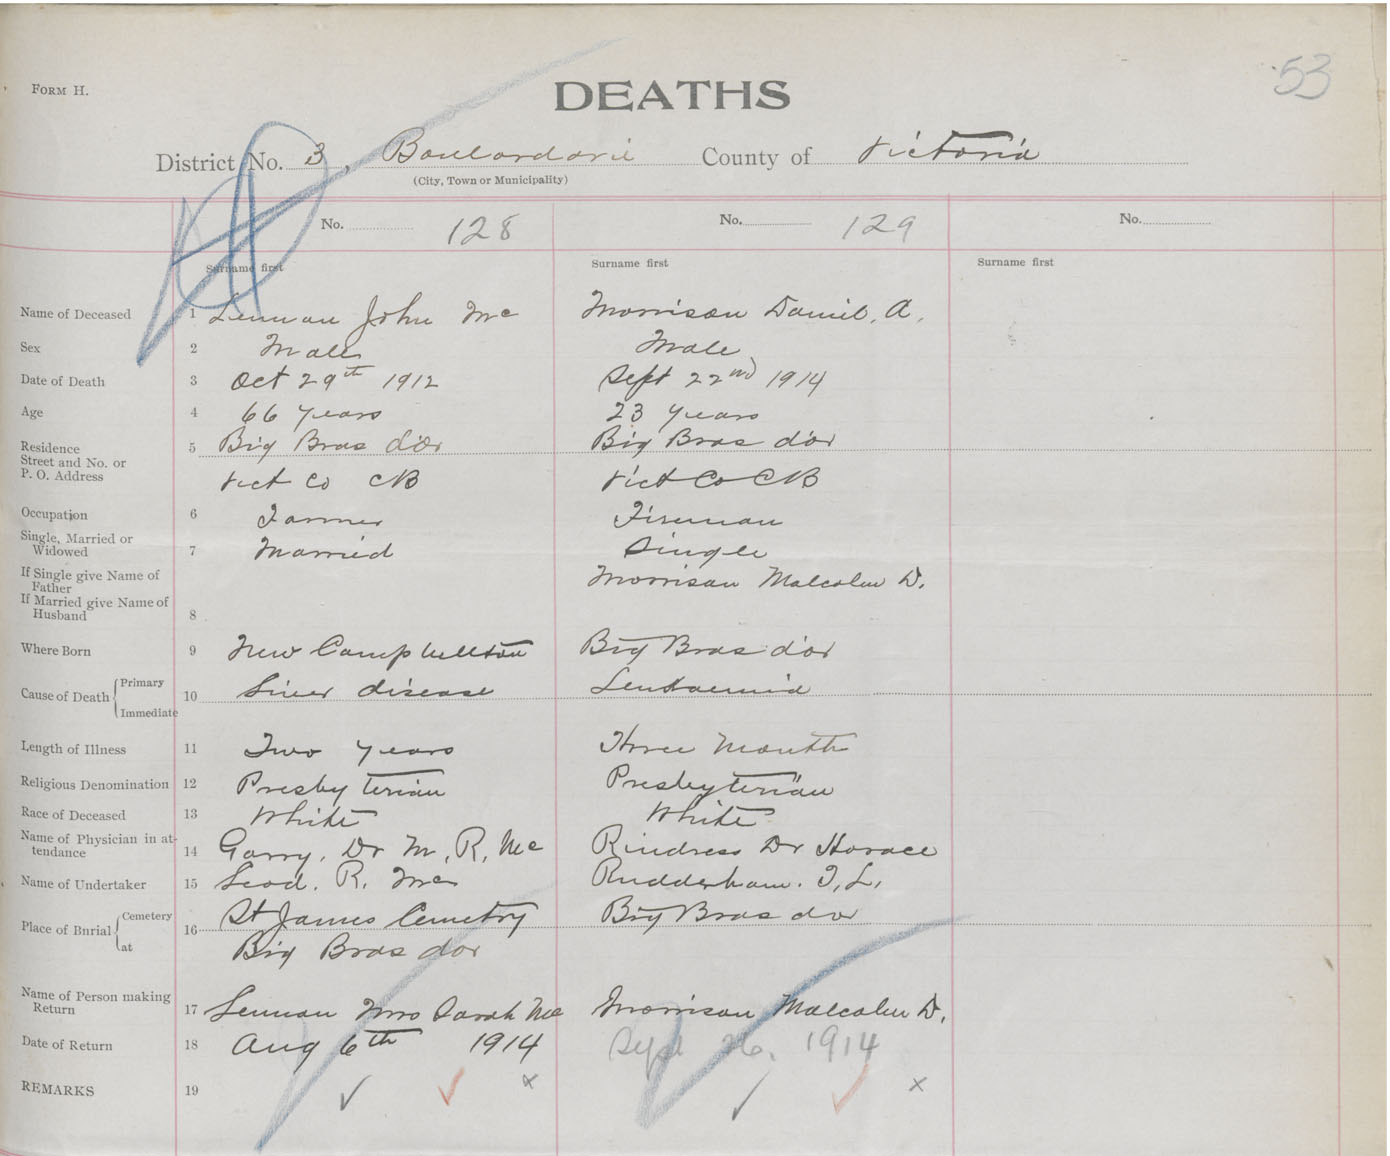 53
FORM H.
DEATHS
District No. 3, Boulardarie County of Victoria
(City, Town or Municipality)
No. 128 No. 129 No.
Surname first Surname first Surname first
Name of Deceased 1 Lennan John Mc Morrison Daniel. A.
Sex 2 Male Male
Date of Death 3 Oct 29th 1912 Sept 22nd 1914
Age 4 66 years 23 years
Residence 5 Big Bras d'or Big Bras d'or
Street and No. or
P. O. Address Vict Co CB Vict Co CB
Occupation 6 Farmer Fireman
Single, Married or
Widowed 7 Married Single
If Single give Name of
Father Morrison Malcolm D.
If Married give Name of
Husband 8
Where Born 9 New Campbellton Big Bras d'or
Cause of Death Primary 10 Liver disease
Immediate
Length of Illness 11 Two years Three Month
Religious Denomination 12 Presbyterian Presbyterian
Race of Deceased 13 White White
Name of Physician in at-
tendance 14 Garry. Dr M. R. Mc Rindress Dr Horace
Name of Undertaker 15 Leod. R. Mc Rudderham. J. L.
Place of Burial Cemetery 16 St James Cemetry Big Bras dor
at Big Bras dor
Name of Person making
Return 17 Lennan Mrs Sarah Mc Morrison Malcolm D.
Date of Return 18 Aug 6th 1914 Sept 26. 1914
REMARKS 19